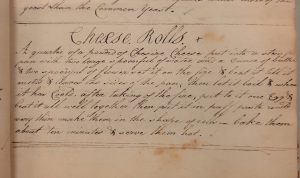 yeast than the Common Yeast.
Cheese Rolls
A quarter of a pound of Cheshire Cheese put into a stew
pan with two large spoonful of water and a ounce of butter
& two spoonful of flour set it on the fire & beat it till it
melts & turns
it has Coold. after taking of the fire, put to it one Egg &
beat it all well together then put it in puff paste rolld
very thin make them in the shape of – bake them
about ten minutes & serve them hot.